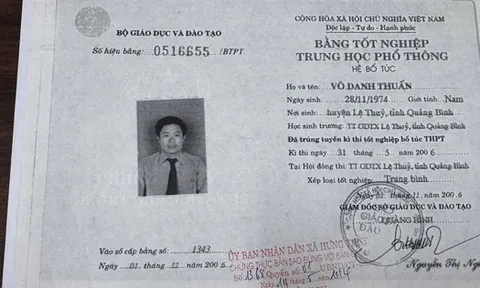 BỘ GIÁO DỤC VÀ ĐÀO TẠO
Số hiệu bằng: 0516655 /BTPT
CỘNG HÒA XÃ HỘI CHỦ NGHĨA VIỆT NAM
Độc lập - Tự do - Hạnh phúc
BẰNG TỐT NGHIỆP
TRUNG HỌC PHỔ THÔNG
HỆ BỔ TÚC
Họ và tên: VÕ DANH THUẤN
Ngày sinh: 28/11/1974 Giới tính: Nam
Nơi sinh: huyện Lệ Thuỷ, tỉnh Quảng Bình
Học sinh trường: TT GDTX Lệ Thuỷ, tỉnh Quảng Bình
Đã trúng tuyển kì thi tốt nghiệp bổ túc THPT
Kì thi ngày 31 tháng 5 năm 2006
Tại Hội đồng thi: TT GDTX Lệ Thuỷ, tỉnh Quảng Bình
Xếp loại tốt nghiệp: Trung bình
Ngày 01 tháng 11 năm 2006
GIÁM ĐỐC SỞ GIÁO DỤC VÀ ĐÀO TẠO
QUẢNG BÌNH
GIÁO
ĐÀO
Nguyễn Thị
Vào sổ cấp bằng số: 1343
Ngày 01 tháng 12 năm 2006
ỦY BAN NHÂN DÂN XÃ HƯNG
CHỨNG THỰC BẢN SAO ĐÚNG VỚI BẢN
Quyển số